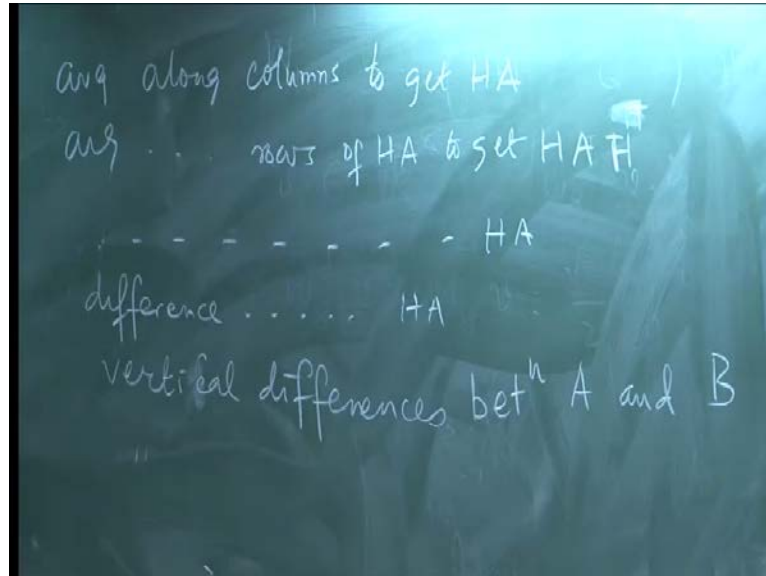 avg along columns to get HA
avg . . . rows of HA to get HAH
. - - - - - - - HA
difference . . . . . HA
vertical differences betⁿ A and B